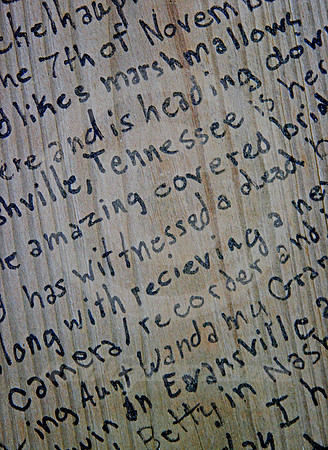 ckelhaup
he 7th of Novemb
d likes marshmallows
ere and is heading dow
shville, Tennessee is he
e amazing covered brid
d has wittnessed a dead b
long with recieving a ne
Camera/recorder and
ting Aunt Wanda my Gran
win in Evansville a
Betty in Nash
day I h